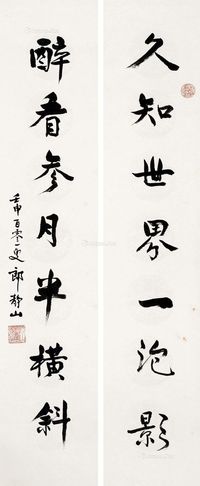 久知世界一泡影
醉看参月半横斜
壬申百零一叟郎静山